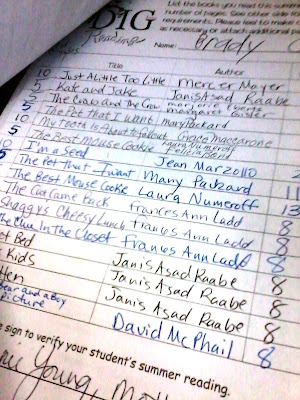 DIG
Reading
List the books you read this summer
number of pages. See other side for
requirements. Please feel to make
as necessary or attach additional
Name: Brady C
Title Author
10 Just A Little Too Little Mercer Mayer
5 Kate and Jake Janis Asad Raabe
2 The Crab and The Cow marjorie
5 The Pet that I want mary Packard
10 My Tooth Is About to fall out Grace maccarone
5 The Best Mouse Cookie Laura Numeroff
10 I'm a Seed Jean Marzollo
The Pet that I want Mary Packard
The Best Mouse Cookie Laura Numeroff
The Cat Came Back Frances Ann Ladd 8
Shaggy's Cheesy Lunch Frances Ann Ladd 8
The Clue In The Closet Frances Ann Ladd 8
Bed Janis Asad Raabe 8
Kids Janis Asad Raabe 8
Janis Asad Raabe 8
and a Boy
picture David McPhail 8
sign to verify your student's summer reading.
Young,